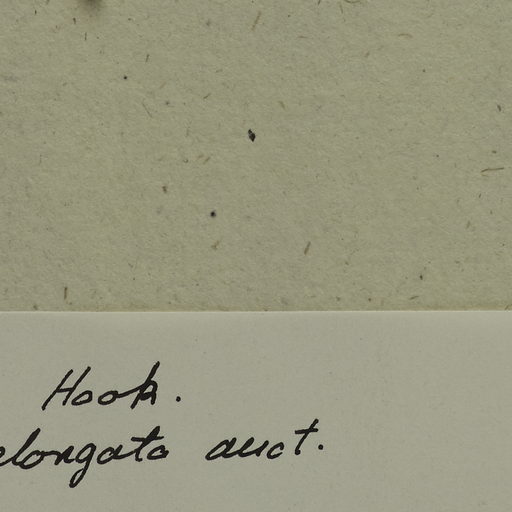 Hook.
elongata auct.